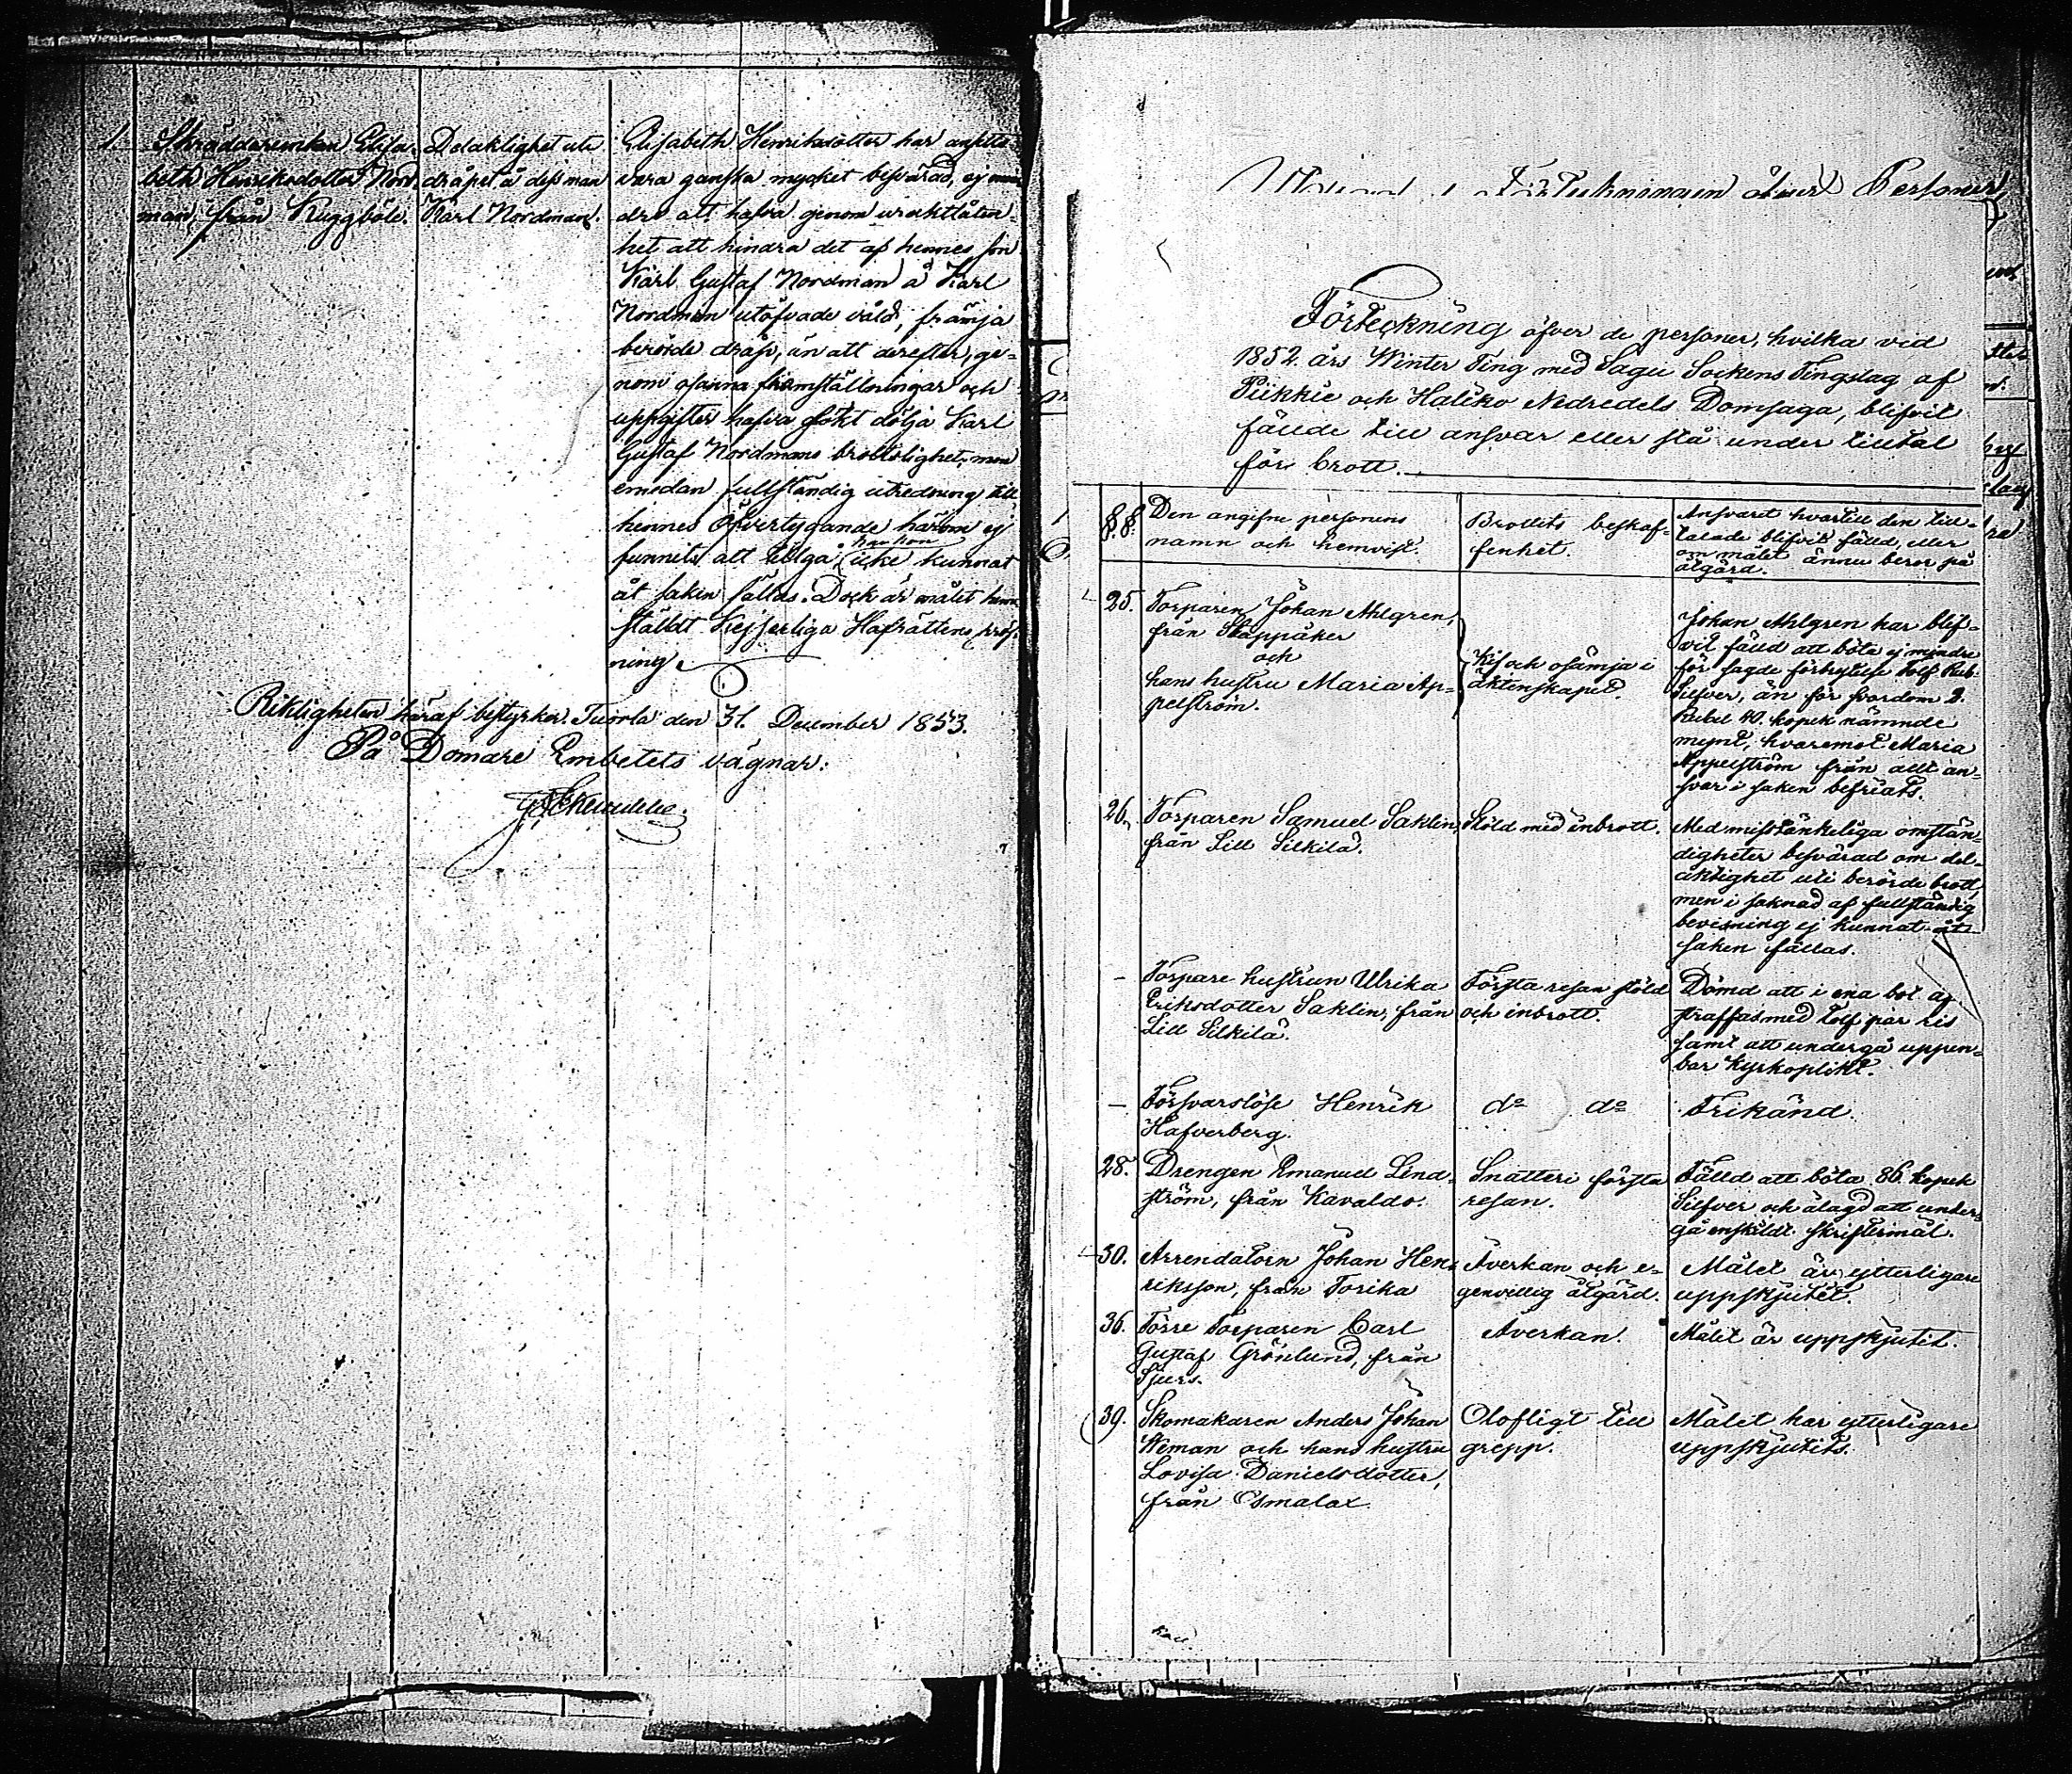 1. Skräddareenkan Elisa-
beth Henriksdotter Nord-
man, från Kuggböle.
Delaktighet uti
dråpet å dess man
Karl Nordman.
Elisabeth Henriksdotter har ansetts
vara ganska mycket besvärad, ej min-
dre att hafva genom uraktlåten-
het att hindra det af hennes son
Karl Gustaf Nordman å Karl
Nordman utöfvade våld, främja
berörde dråp, än att derefter, ge-
nom osanna framställningar och
uppgifter hafva sökt dölja Karl
Gustaf Nordmans brottslighet, men
emedan fullständig utredning till
hennes öfvertygande härom ej
funnits att tillgå, har hon icke kunnat
åt saken fällas. Dock är målet hem-
ställdt Kejserliga Hofrättens pröf-
ning.
Riktigheten häraf bestyrker. Tuorla den 31. December 1853.
På Domare Embetets vägnar:
Förteckningen öfver Personer
Förteckning öfver de personer, hvilka vid
1852 års Winter Ting med Sagu Sockens Tingslag af
Piikkie och Haliko Nedredels Domsaga, blifvit
fällde till ansvar eller stå under tilltal
för brott.
§.§.
Den angifne personens
namn och hemvist.
Brottets beskaf-
fenhet.
Ansvaret hvartill den till-
talade blifvit fälld, eller
om målet ännu beror på
åtgärd.
25. Torparen Johan Ahlgren,
från Skäppåker
och
hans hustru Maria Ap-
pelström.
Kif och osämja i
äktenskapet.
Johan Ahlgren har blif-
vit fälld att böta ej mindre
för sagde förbrytelse tolf Rub.
Silfver, än för svordom 2.
Rubel 40. kopek nämnde
mynt, hvaremot Maria
Appelström från allt an-
svar i saken befriats.
26. Torparen Samuel Saklin,
från Lill Silkilä.
Stöld med inbrott.
Med misstänkeliga omstän-
digheter besvärad om del-
aktighet uti berörde brott,
men i saknad af fullständig
bevisning ej kunnat åt
saken fällas.
— Torpare hustrun Ulrika
Eriksdotter Saklin, från
Lill Silkilä.
Första resan stöld
och inbrott.
Dömd att i ena bot af-
straffas med tolf par ris
samt att undergå uppen-
bar Kyrkoplikt.
— Försvarslöse Henrik
Hafverberg.
do do
Frikänd.
28. Drengen Emanuel Lind-
ström, från Kavaldo.
Snatteri första
resan.
Fälld att böta 86 kopek
Silfver och ålagd att under-
gå enskildt skriftermål.
30. Arrendatorn Johan Hen-
riksson, från Torika
Åverkan och e-
genvillig åtgärd.
Målet är ytterligare
uppskjutet.
36. Förre Torparen Carl
Gustaf Grönlund, från
Spurs.
Åverkan.
Målet är uppskjutet.
39. Skomakaren Anders Johan
Weman och hans hustru
Lovisa Danielsdotter,
från Osmalax.
Olofligt till
grepp.
Målet har ytterligare
uppskjutits.